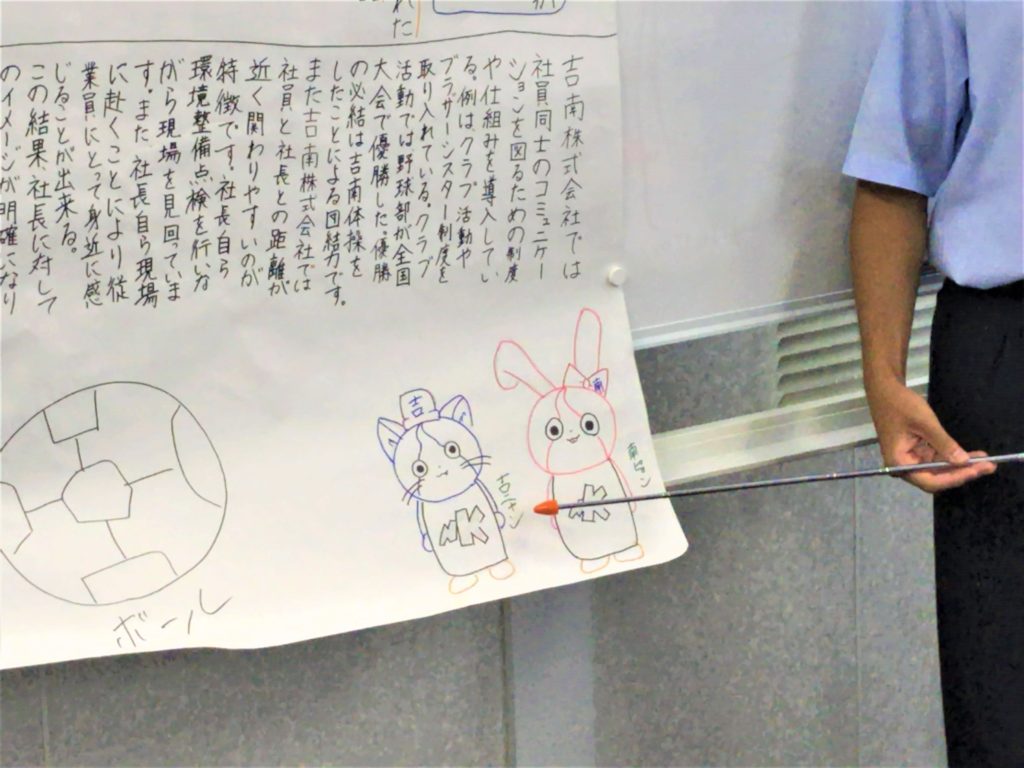 れた
吉南株式会社では
社員同士のコミュニケー
ションを図るための制度
や仕組みを導入してい
る。例は、クラブ活動や
ブラザーシスター制度を
取り入れている。クラブ
活動では野球部が全国
大会で優勝した。優勝
の必結は吉南体操を
したことによる団結力です。
また吉南株式会社では
社員と社長との距離が
近く関わりやすいのが
特徴です。社長自ら
環境整備点検を行いな
がら現場を見回っていま
す。また社長自ら現場
に赴くことにより従
業員にとって身近に感
じることが出来る。
この結果、社長に対して
のイメージが明確になり
吉
南
NK
吉ニャン
NK
南ピョン
ボール